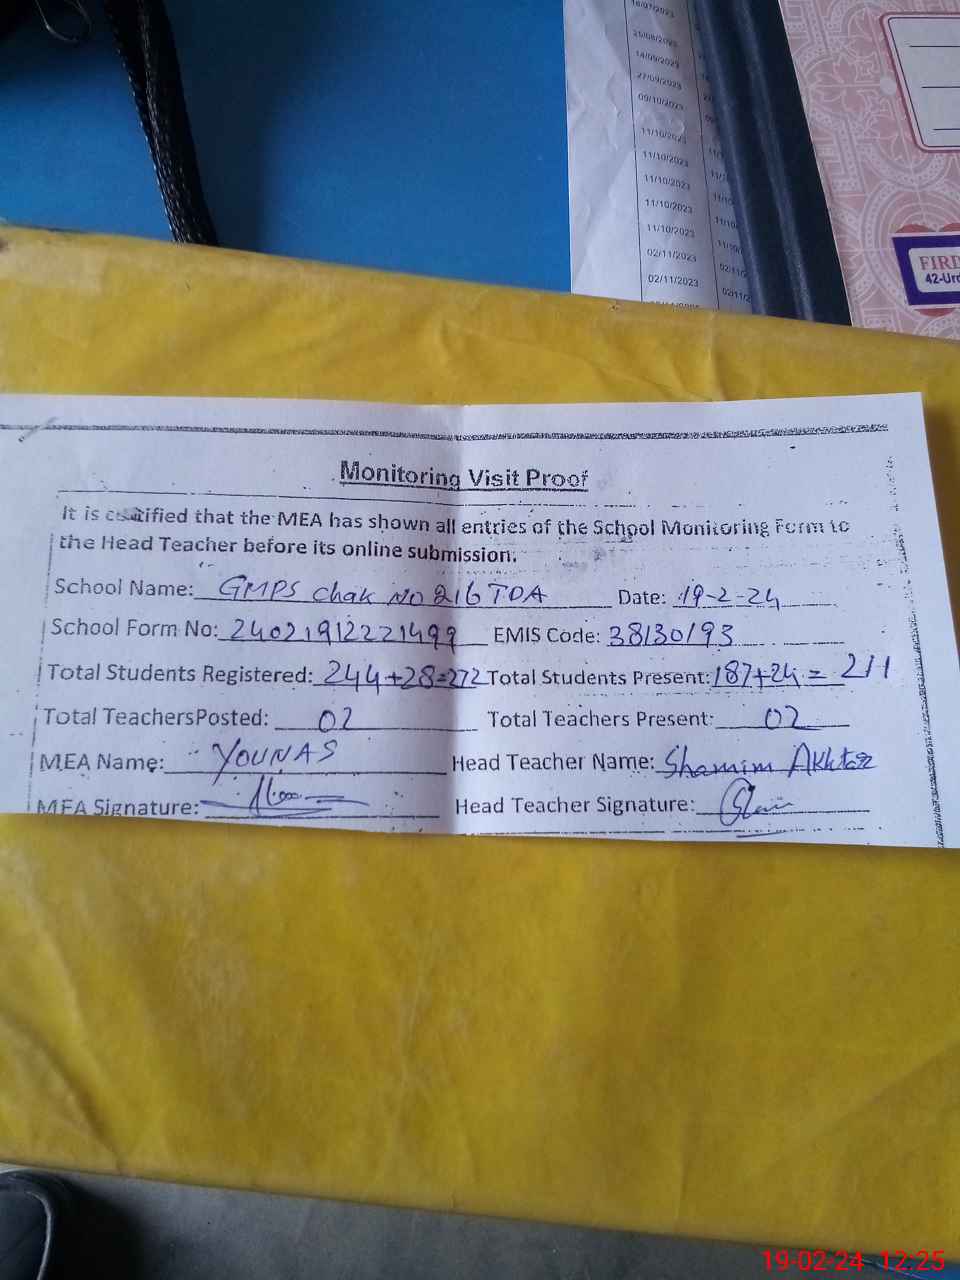 16/07/2023
25/08/2023
14/09/2023
27/09/2023
09/10/2023
11/10/2023
11/10/2023
11/10/2023
11/10/2023
11/10/2023
02/11/2023
02/11/2023
FIRD
42-Urd
Monitoring Visit Proof
It is certified that the MEA has shown all entries of the School Monitoring Form to
the Head Teacher before its online submission.
School Name: GMPS Chak NO 216 TDA Date: 19-2-24
School Form No: 24021912221499 EMIS Code: 38130193
Total Students Registered: 244+28=272 Total Students Present: 187+24=211
Total TeachersPosted: 02 Total Teachers Present: 02
MEA Name: YOUNAS Head Teacher Name: Shamim Akhtar
MEA Signature: Head Teacher Signature:
19-02-24 12:25